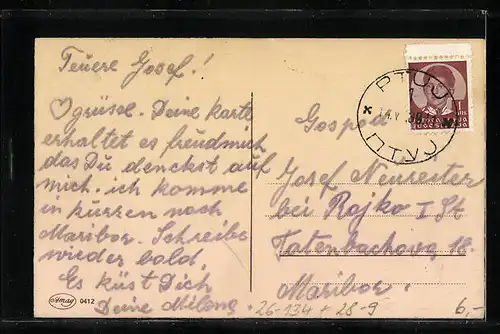 Teuere Josef!
♡ grüsse. Deine karte
erhaltet es freudmich
das Du denckst auf
mich. ich komme
in kurzen nach
Maribor. Schreibe
wieder bald.
Es küst Dich
Deine Milena.
Amag 0412
PTUJ
14.V.36
ПТУЈ
Gospod
Josef Neurester
bei Rajko I St
Tatenbachova 18.
Maribor.
26-134 + 28-9
6,-